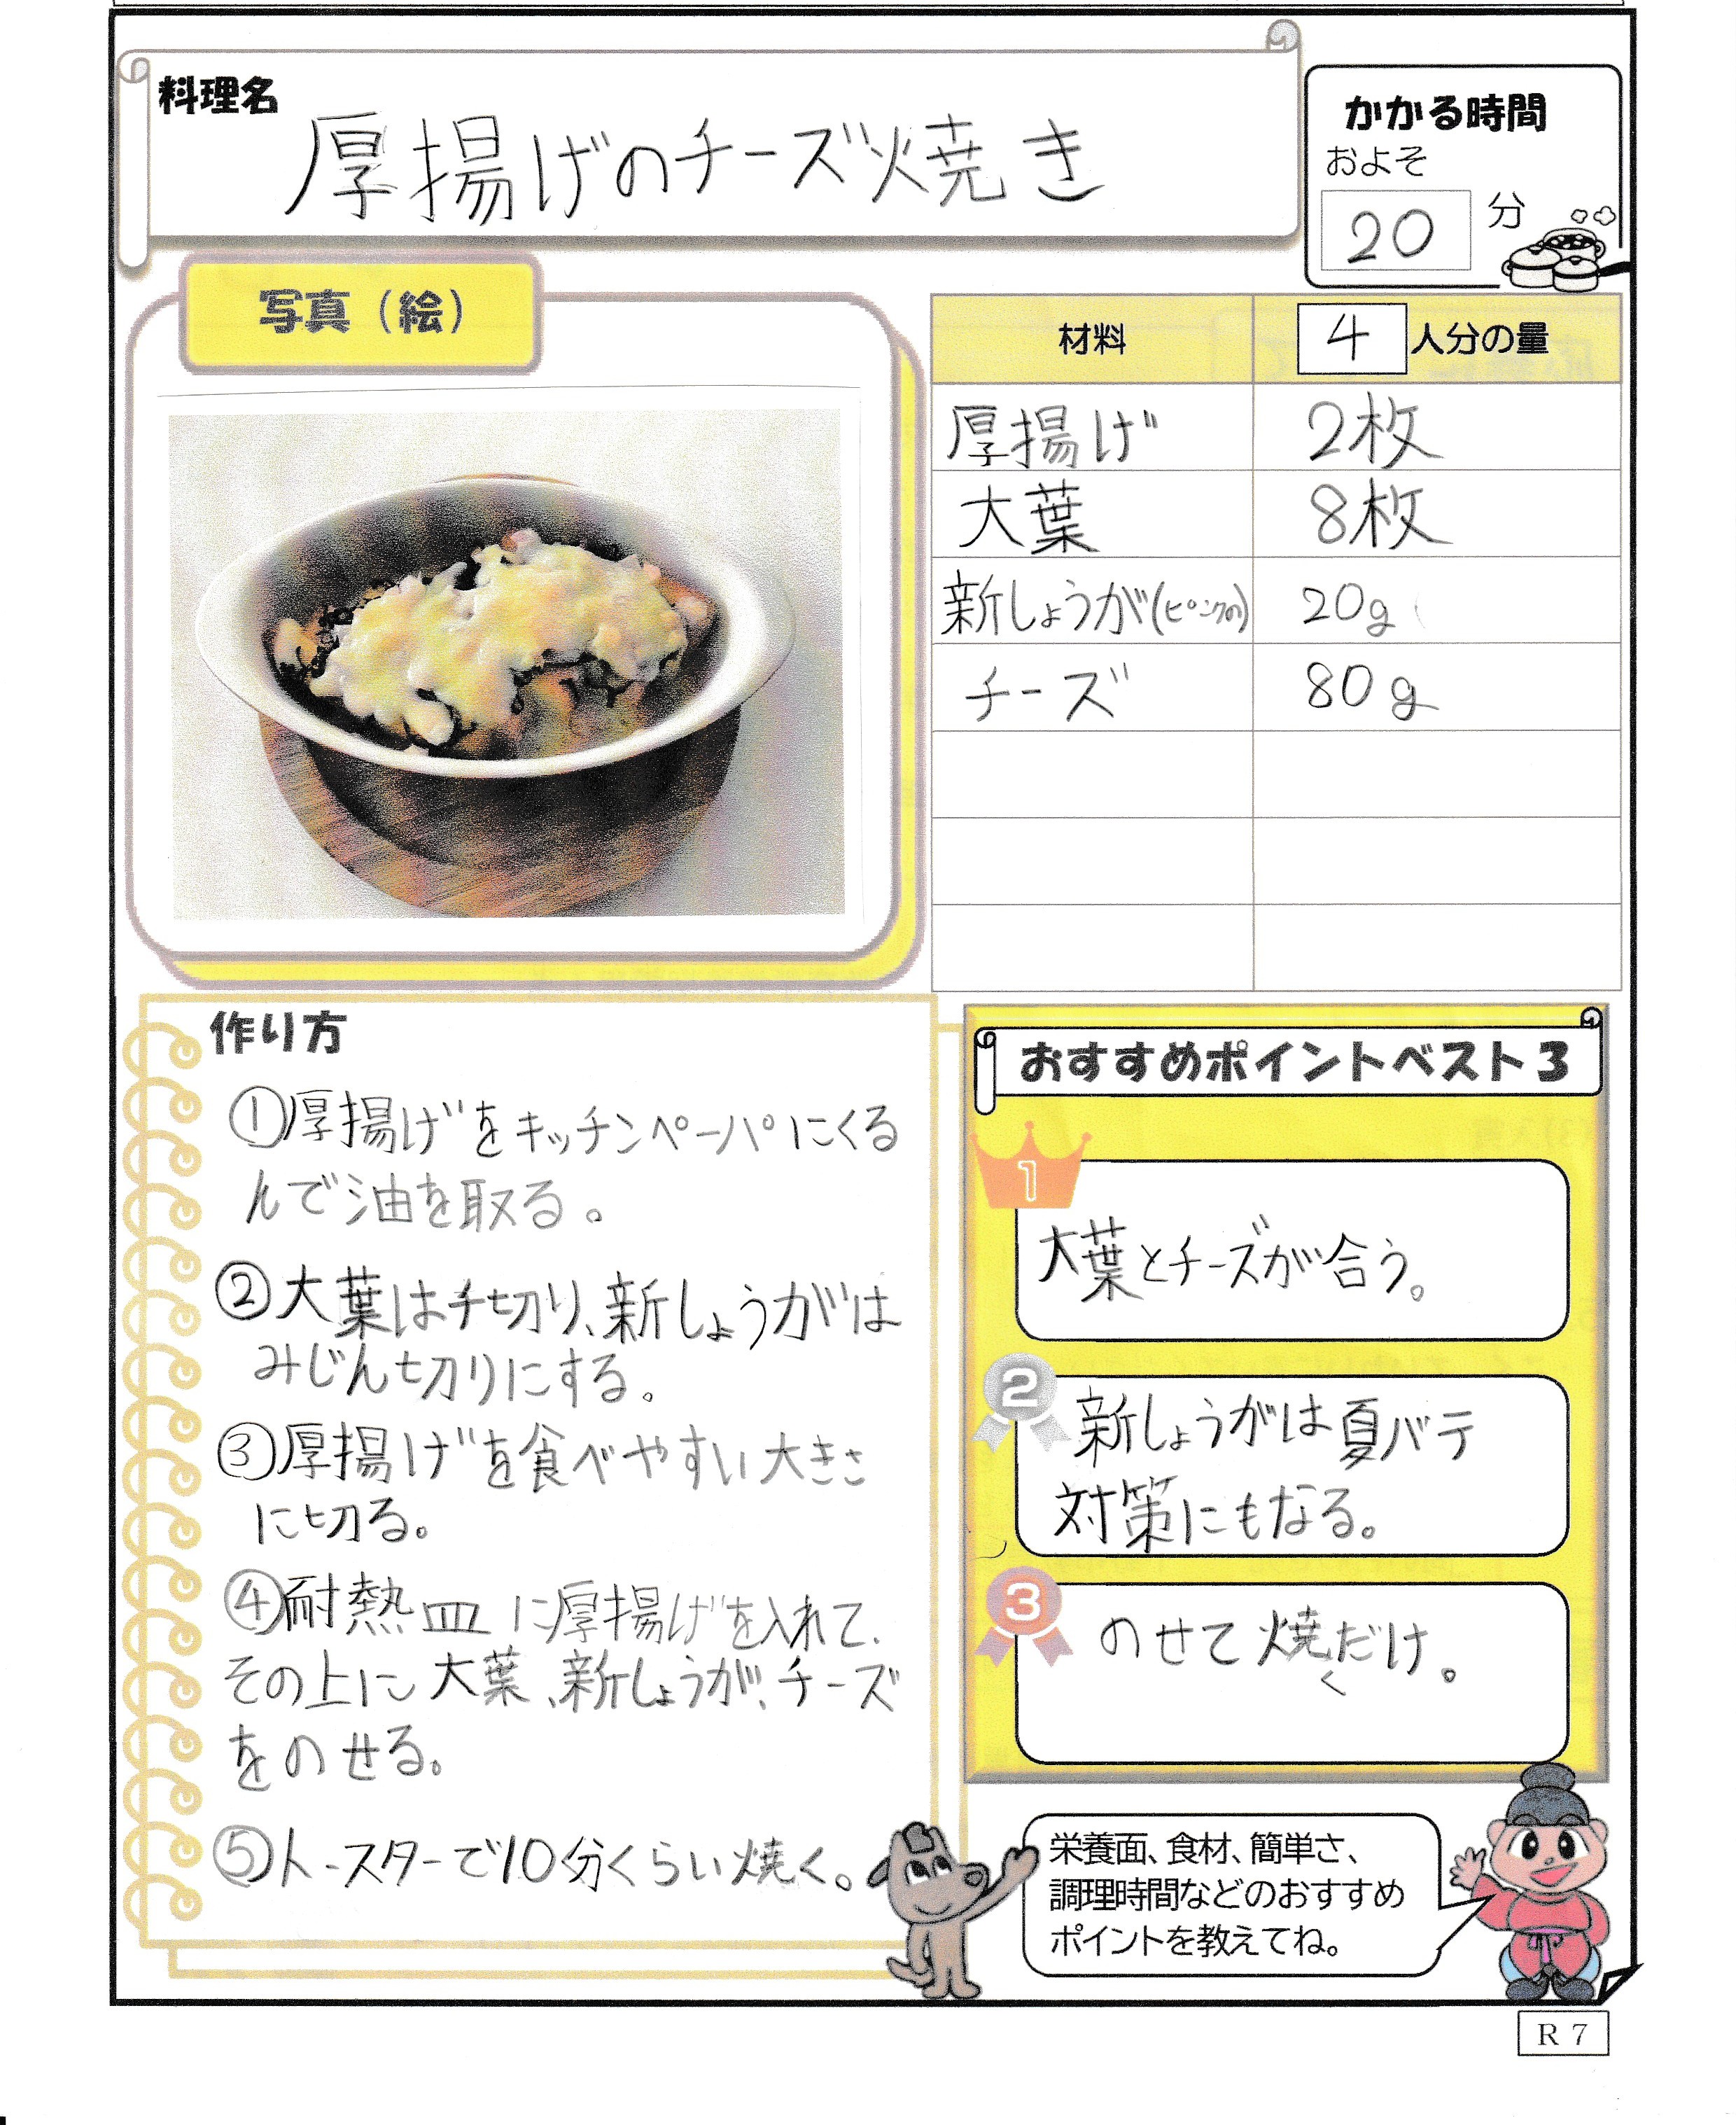 料理名
厚揚げのチーズ焼き
かかる時間
およそ
20
分
写真(絵)
材料
4
人分の量
厚揚げ
2枚
大葉
8枚
新しょうが(ピンクの)
20g
チーズ
80g
作り方
①厚揚げをキッチンペーパにくる
んで油を取る。
②大葉は千切り、新しょうがは
みじん切りにする。
③厚揚げを食べやすい大きさ
に切る。
④耐熱皿に厚揚げを入れて、
その上に大葉、新しょうが、チーズ
をのせる。
⑤トースターで10分くらい焼く。
おすすめポイントベスト3
1
大葉とチーズが合う。
2
新しょうがは夏バテ
対策にもなる。
3
のせて焼くだけ。
栄養面、食材、簡単さ、
調理時間などのおすすめ
ポイントを教えてね。
R7